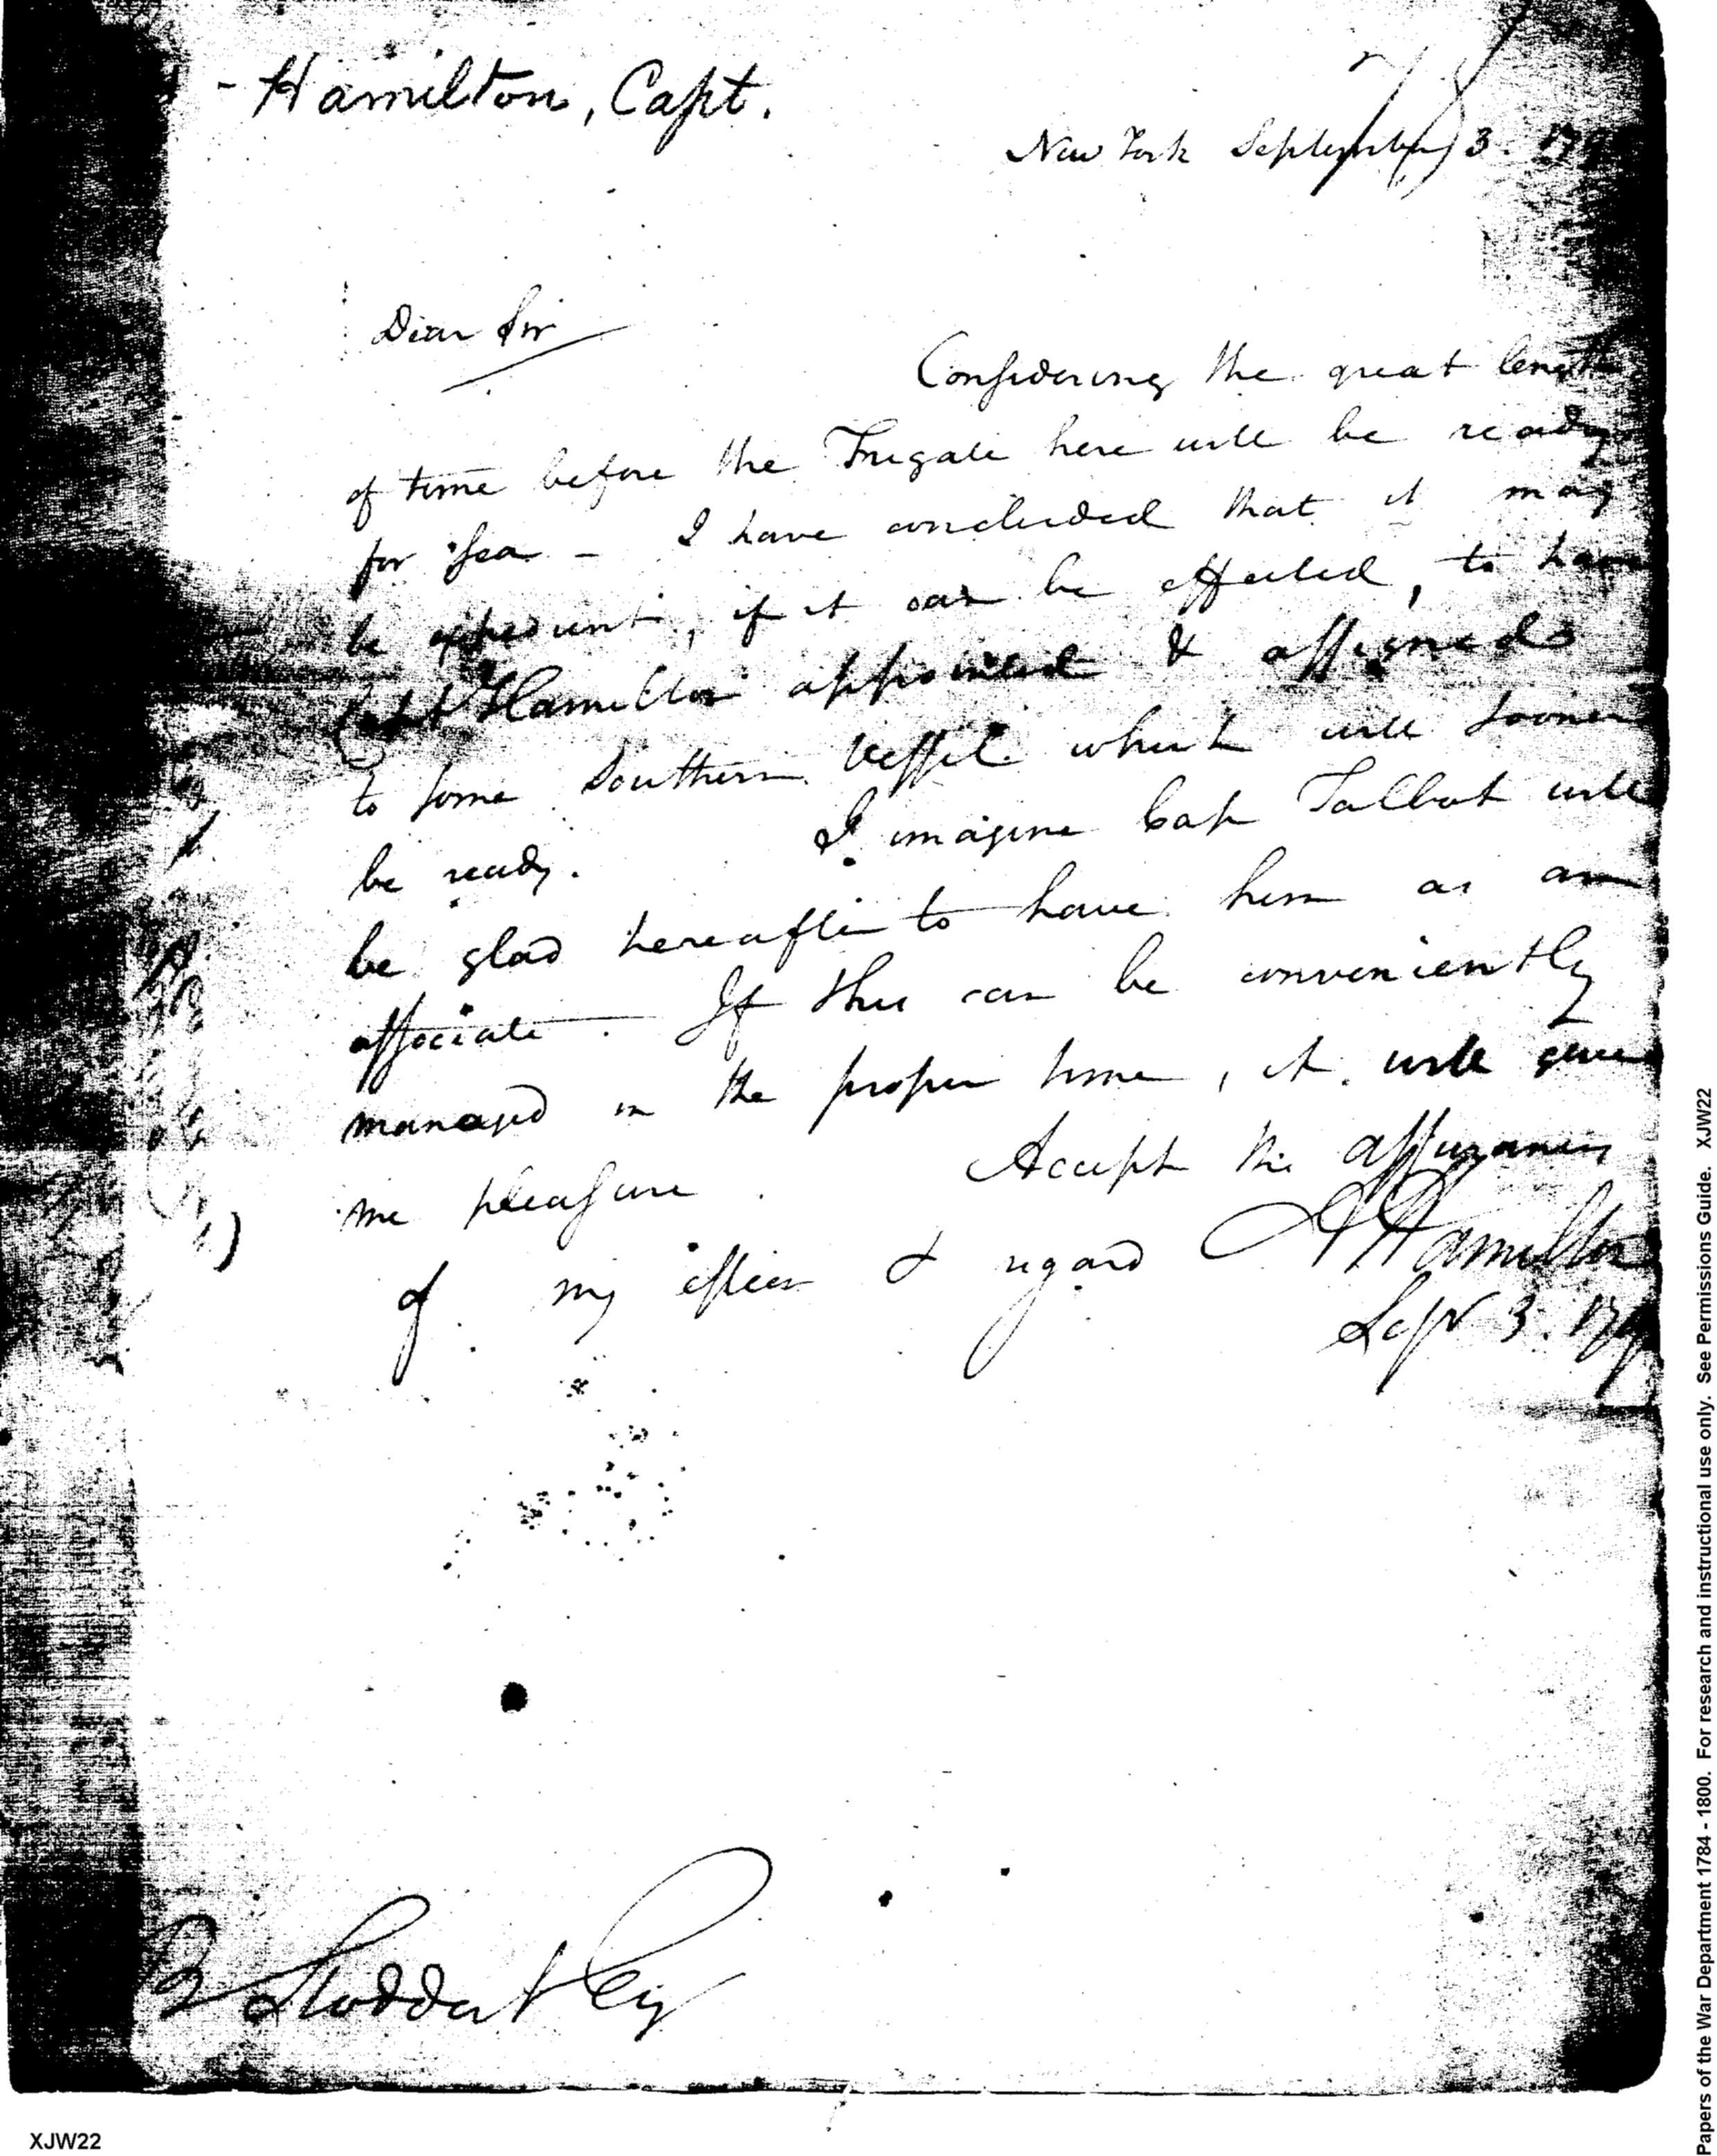 - Hamilton, Capt.
New York September 3. 179
Dear Sir
Considering the great length
of time before the Frigate here will be ready
for sea - I have concluded that it may
be expedient, if it can be effected, to have
Capt Hamilton appointed & assigned
to some Southern Vessel which will sooner
be ready. I imagine Capt Talbot will
be glad hereafter to have him as an
associate. If this can be conveniently
managed in the proper time, it will give
me pleasure. Accept the assurances
of my esteem & regard A Hamilton
Sepr 3. 179
B Stoddert Esq
XJW22
Papers of the War Department 1784 - 1800. For research and instructional use only. See Permissions Guide. XJW22